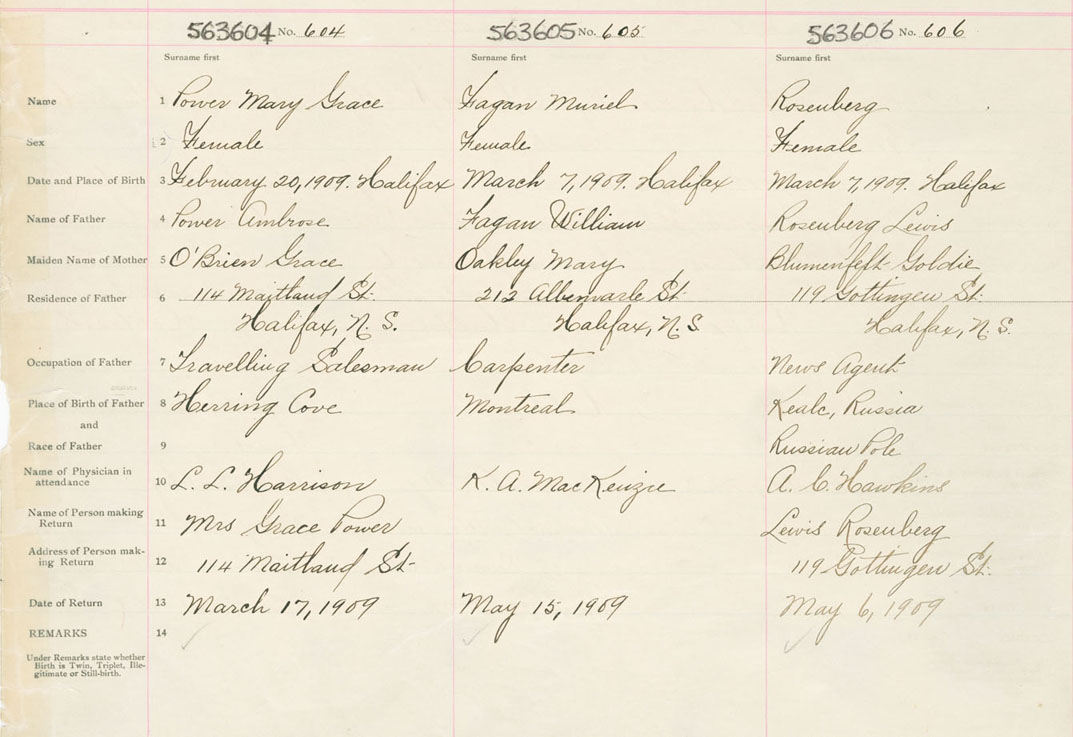 563604 No. 604 563605 No. 605 563606 No. 606
Surname first Surname first Surname first
Name 1 Power Mary Grace Fagan Muriel Rosenberg
Sex 2 Female Female Female
Date and Place of Birth 3 February 20, 1909. Halifax March 7, 1909. Halifax March 7, 1909. Halifax
Name of Father 4 Power Ambrose Fagan William Rosenberg Lewis
Maiden Name of Mother 5 O'Brien Grace Oakley Mary Blumenfelt Goldie
Residence of Father 6 114 Maitland St. 212 Albemarle St. 119 Gottingen St.
Halifax, N. S. Halifax, N. S Halifax, N. S.
Occupation of Father 7 Travelling Salesman Carpenter News Agent
Place of Birth of Father 8 Herring Cove Montreal Russia
and
Race of Father 9 Russian Pole
Name of Physician in
attendance 10 L. L. Harrison K. A. MacKenzie A. C. Hawkins
Name of Person making
Return 11 Mrs Grace Power Lewis Rosenberg
Address of Person mak-
ing Return 12 114 Maitland St 119 Gottingen St.
Date of Return 13 March 17, 1909 May 15, 1909 May 6, 1909
REMARKS 14
Under Remarks state whether
Birth is Twin, Triplet, Ille-
gitimate or Still-birth.